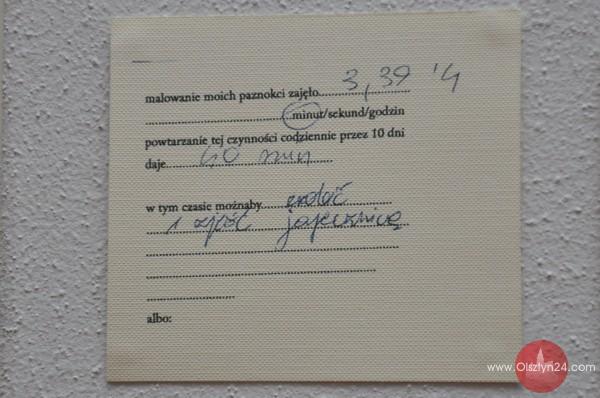 malowanie moich paznokci zajęło 3,39 '4
minut/sekund/godzin
powtarzanie tej czynności codziennie przez 10 dni
daje 40 min
w tym czasie możnaby zrobić
i zjeść jajecznicę
albo:
www.Olsztyn24.com